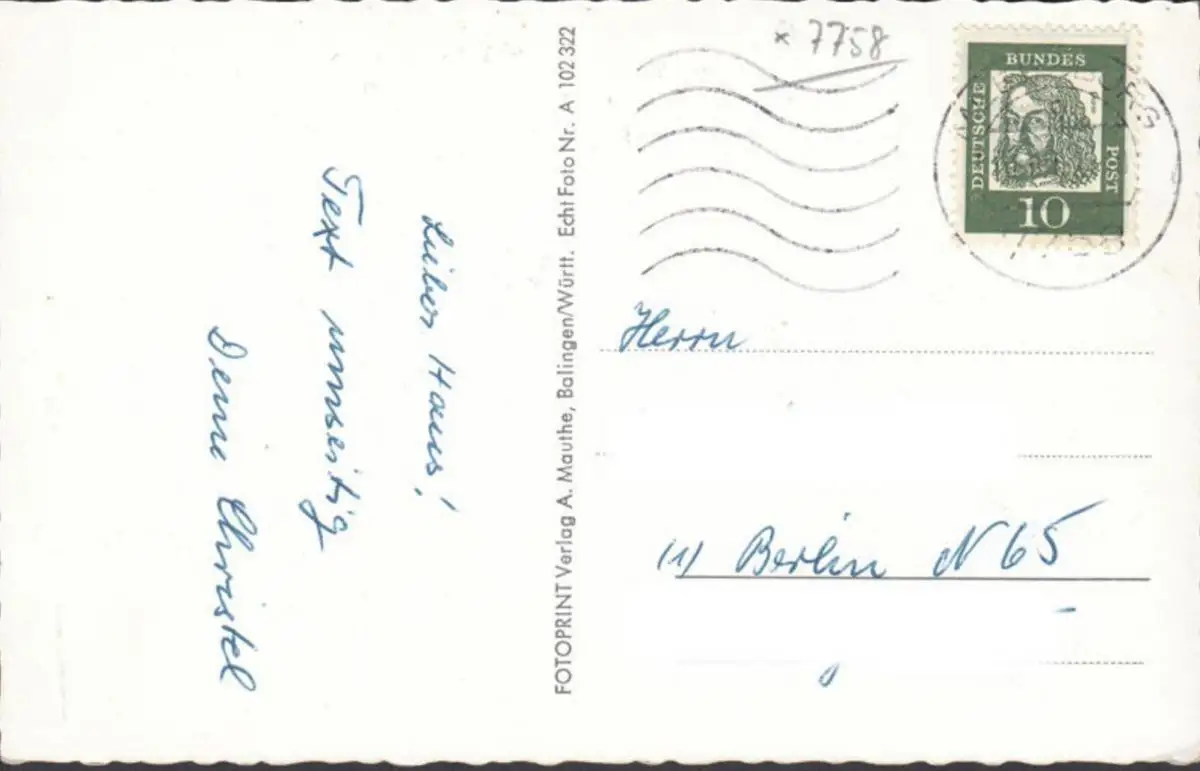 Lieber Hans!
Text umseitig
Deine Christel
FOTOPRINT Verlag A. Mauthe, Balingen/Württ. Echt Foto Nr. A 102 322
* 7758
DEUTSCHE
BUNDES
POST
10
7758
Herrn
(1) Berlin N 65